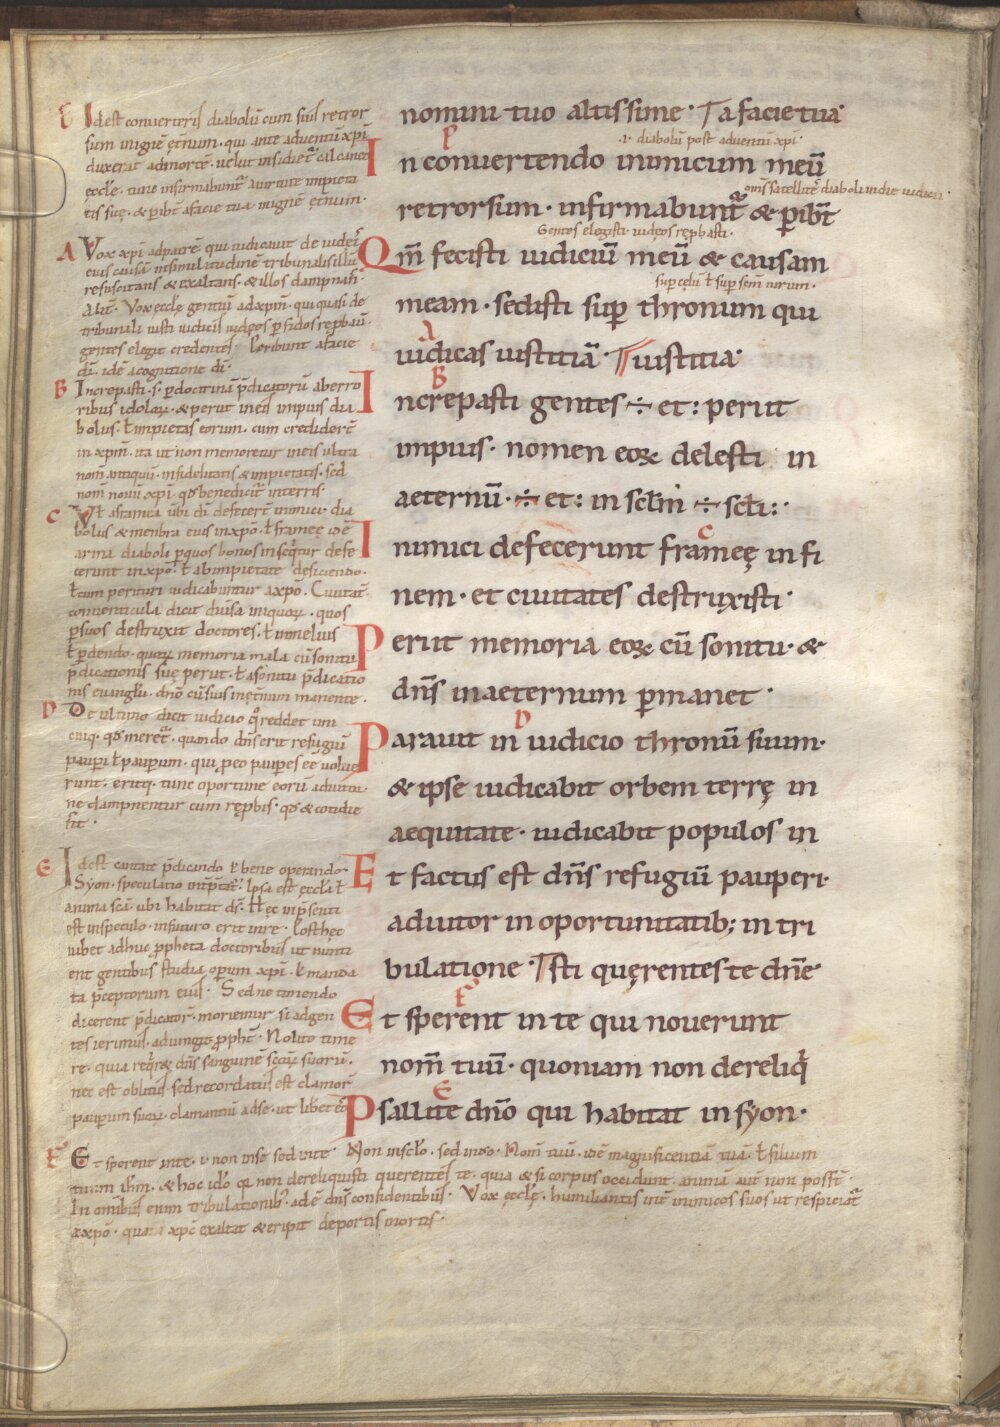 nomini tuo altissime· a facie tua·
·i· diabolū post adventū xp̄i·
In convertendo inimicum meū
om̄s satellitē diaboli in die iudicii·
retrorsum· infirmabunt᷑ & p̄ibūt
Gentes elegisti iudęos rępbasti·
Qm̄ fecisti iudiciū meū & causam
sup cęlū ł sup sem̄ virum·
meam· sedisti sup̄ thronum qui
A
iudicas iustitiā· iustitia·
B
Increpasti gentes ÷ et: periit
impius· nomen eoꝝ delesti in
aeternū· ÷ et: in sc̄lm̄ ÷ sc̄li:·
C
Inimici defecerunt frameę in fi
nem· et civitates destruxisti·
Periit memoria eoꝝ cū sonitu· &
dn̄s in aeternum p̄manet·
D
Paravit in iudicio thronū suum·
& ipse iudicabit orbem terrę in
aequitate· iudicabit populos in
Et factus est dn̄s refugiū pauperi·
adiutor in oportunitatib; in tri
bulatione· sti quęrentes te dn̄e·
F
Et sperent in te qui noverunt
nom̄ tuū· quoniam non dereliq̄
E
Psallite dn̄o qui habitat in syon·
Idest converteris diabolū cum suis retror
sum in ignē ęt̄num· qui ante adventū xp̄i
duxerat ad mortē· velut insidiet᷑ calcaneo
eccłę· tunc infirmabunt᷑ a virtute impieta
tis suę· & p̄ibūt a facie tua in ignē ęt̄num·
A Vox xp̄i ad patrē· qui iudicavit de iudęis
eius causā in similitudinē tribunalis illū
resuscitans & exaltans· & illos dampnans·
Alit̄· Vox eccłę gentiū ad xp̄m· qui quasi de
tribunali iusti iudicis iudęos p̄fidos rępbavit·
gentes elegit credentes· Peribunt a facie
di· idē a cognitione di·
B Increpasti·s· p̄ doctrinā p̄dicatorū aberro
ribus idoloꝝ· & periit in eis impius dia
bolus· ł impietas eorum· cum crediderēt
in xp̄m· ita ut non memoretur in eis ultra
nom̄ antiquū· infidelitatis & impietatis· sed
nom̄ novū xp̄i· qd̄ benedicit᷑ in terris·
C Vł a framea ubi dī defecerūt inimici· dia
bolus & membra eius in xpō· ł frameę idē
arma diaboli p̄ quos bonos inseq̄tur defe
cerunt in xpō· ł ab impietate deficiendo·
ł cum perituri iudicabuntur a xpō· Civitat̄·
conventicula dicit diversa iniquoꝝ· quos
p̄ suos destruxit doctores· ł in melius
ł p̄dendo· quoꝝ memoria mala cū sonitu
p̄dicationis suę periit· ł a sonitu p̄dicatio
nis evangłii· dn̄o cū suis in ęt̄num manente·
D De ultimo dicit iudicio q̄ reddet uni
cuiq· qd̄ meret᷑· quando dn̄s erit refugiū
paupi ł paup̄um· qui p̄ eo paup̄es eē volue
runt· eritq· tunc oportune eorū adiutor·
ne dampnentur cum rępbis· qd̄ & cotidie
fit·
E Idest cantate p̄dicando ł bene operando·
Syon· speculatio int̄p̄tat᷑· Ipsa est eccła ł
anima scā· ubi habitat ds̄· Hęc in p̄senti
est in speculo· in futuro erit in re· Post hęc
iubet adhuc ppheta doctoribus ut nunti
ent gentibus studia opum xp̄i· ł manda
ta p̄ceptorum eius· Sed ne timendo
dicerent p̄dicator̄· moriemur si ad gen
tes ierimus· adiungit pph̄a· Nolite time
re· quia req̄ret dn̄s sanguinē scōꝝ suorū·
nec est oblitus sed recordatus est clamor̄
paup̄um suoꝝ· clamantiū ad se· ut liberet eos
F Et sperent in te· i· non in se sed in te· Non in scło· sed in dō· Nom̄ tuū· idē magnificentiā tuā· ł filium
tuum ih̄m· & hoc idō qa non dereliquisti querentes te· quia & si corpus occidunt· animā aut̄ non possunt·
In omnibus enim tribulationib; adē dn̄s confidentibus· Vox eccłę· humiliantis int̄ inimicos suos ut respiciat᷑
a xpō· quā xp̄c exaltat & eripit de portis mortis·